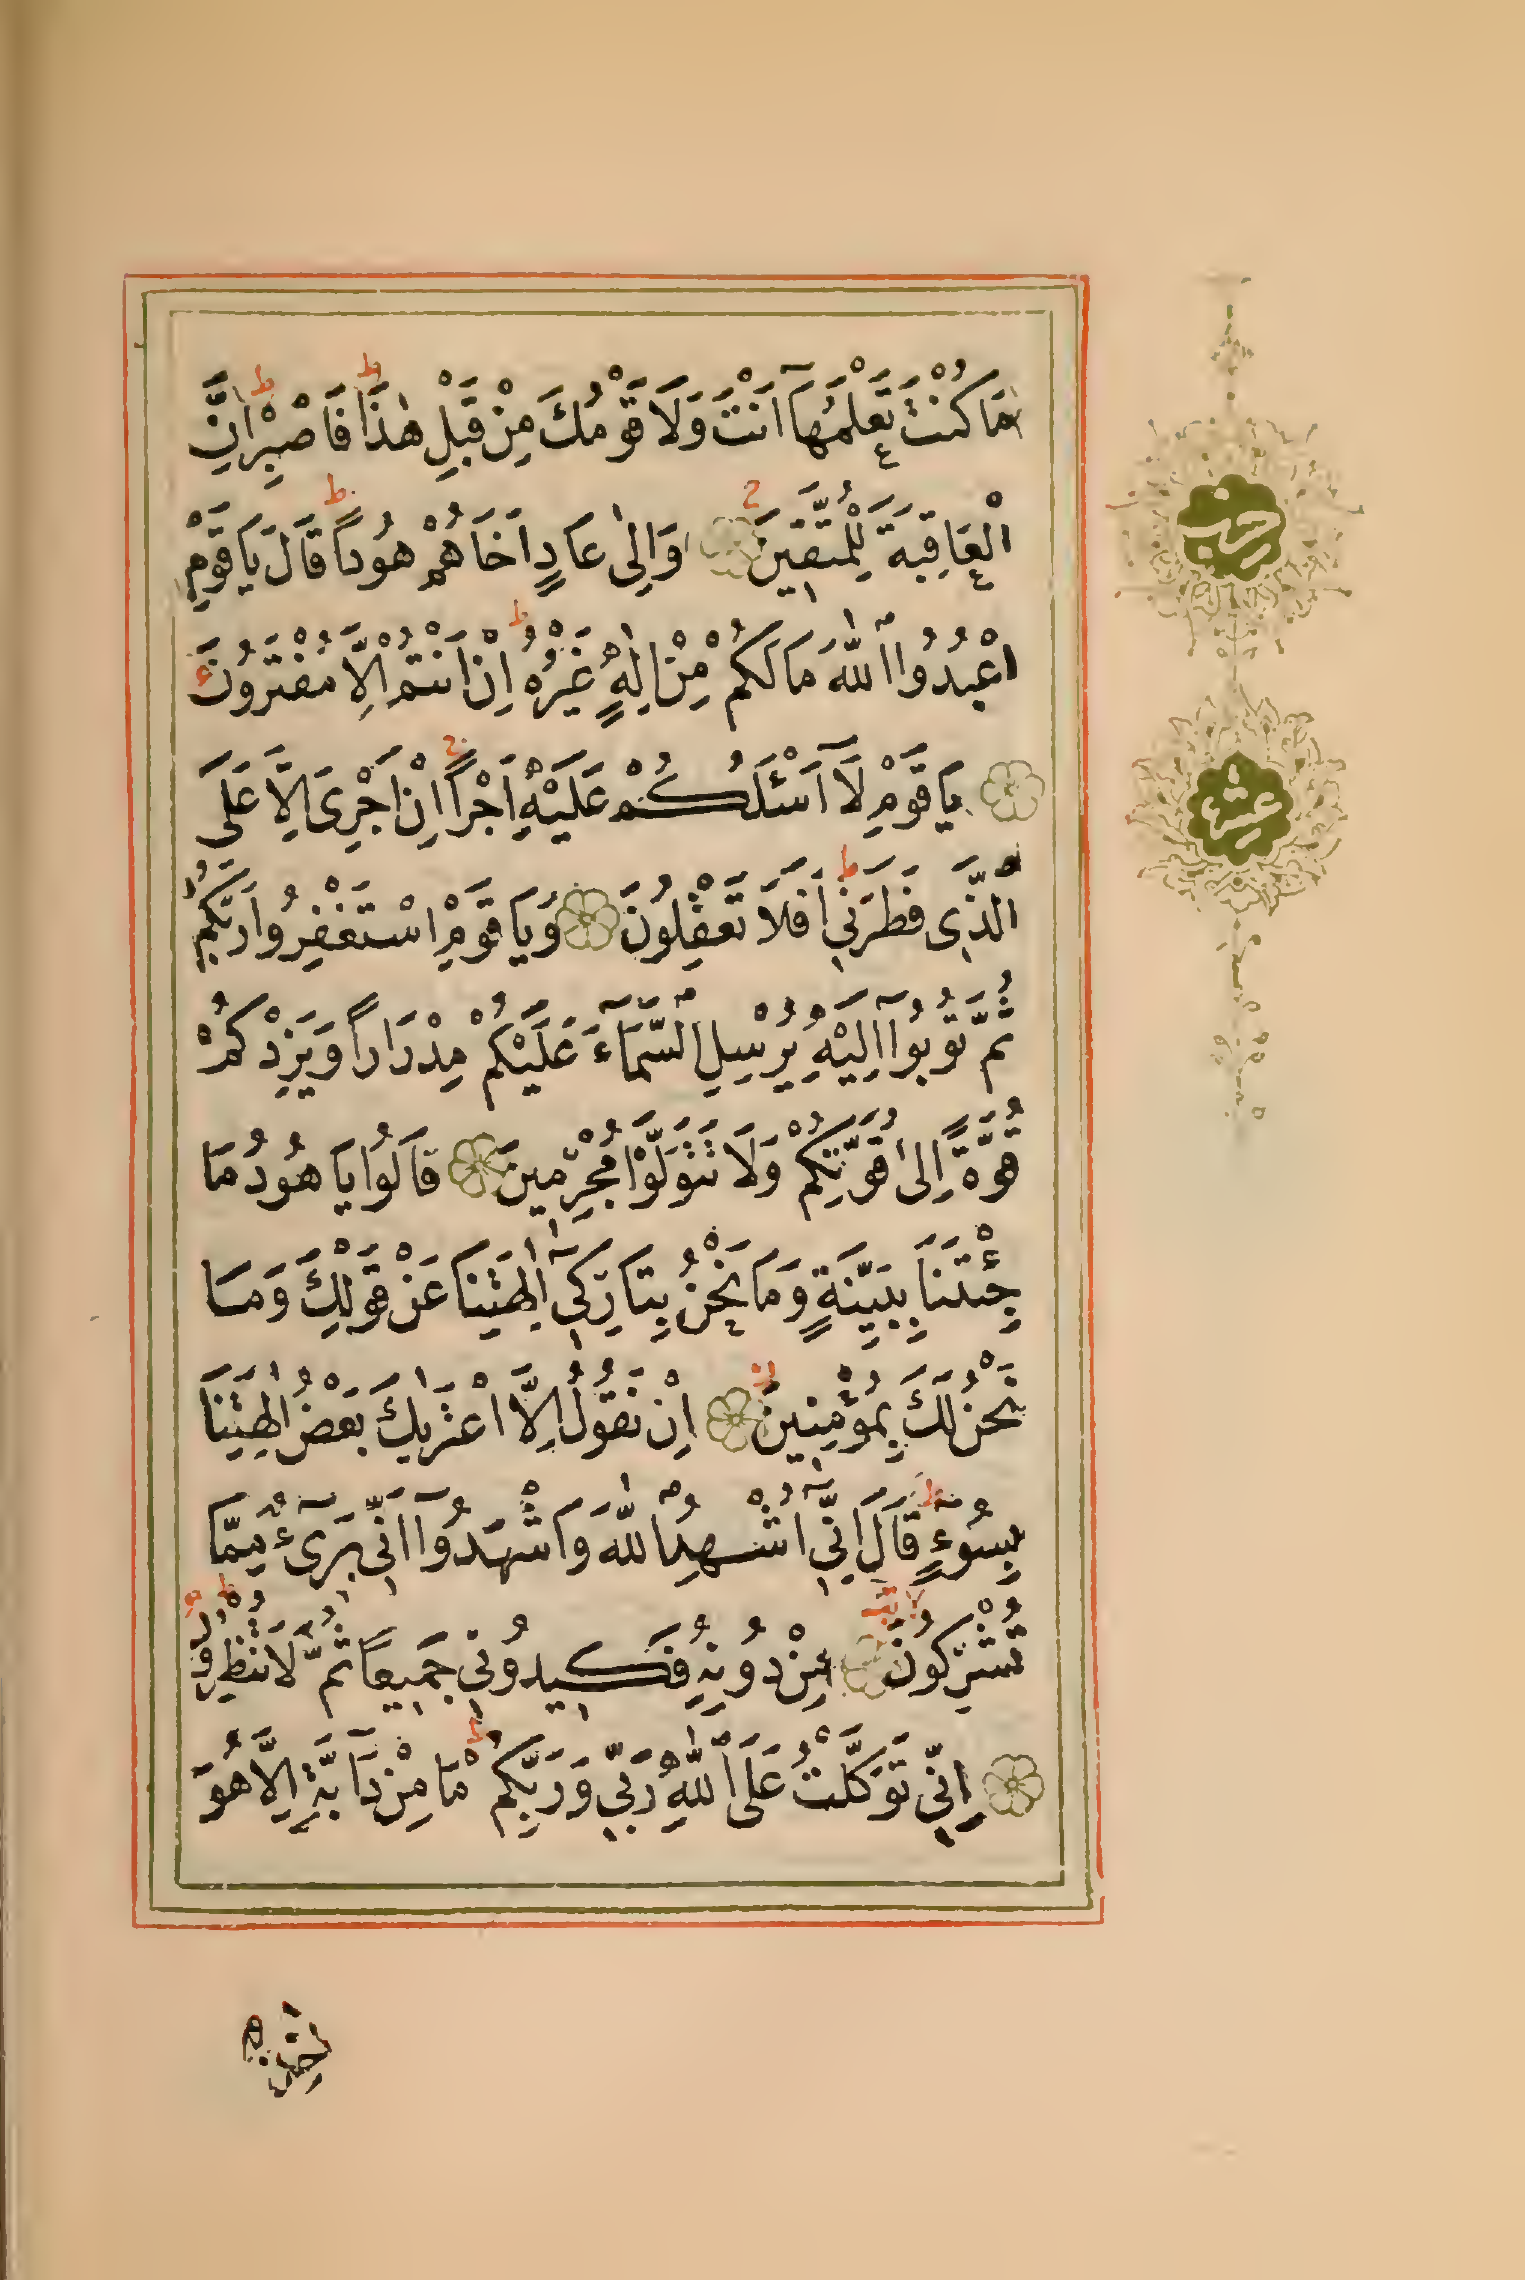 مَا كُنْتَ تَعْلَمُهَآ اَنْتَ وَلَا قَوْمُكَ مِنْ قَبْلِ هٰذَا فَاصْبِرْ اِنَّ
الْعَاقِبَةَ لِلْمُتَّقِينَ وَاِلٰى عَادٍ اَخَاهُمْ هُودًا قَالَ يَا قَوْمِ
اعْبُدُوا اللّٰهَ مَا لَكُمْ مِنْ اِلٰهٍ غَيْرُهُ اِنْ اَنْتُمْ اِلَّا مُفْتَرُونَ
يَا قَوْمِ لَآ اَسْئَلُكُمْ عَلَيْهِ اَجْرًا اِنْ اَجْرِىَ اِلَّا عَلَى
الَّذِى فَطَرَنِى اَفَلَا تَعْقِلُونَ وَيَا قَوْمِ اسْتَغْفِرُوا رَبَّكُمْ
ثُمَّ تُوبُوآ اِلَيْهِ يُرْسِلِ السَّمَآءَ عَلَيْكُمْ مِدْرَارًا وَيَزِدْكُمْ
قُوَّةً اِلٰى قُوَّتِكُمْ وَلَا تَتَوَلَّوْا مُجْرِمِينَ قَالُوا يَا هُودُ مَا
جِئْتَنَا بِبَيِّنَةٍ وَمَا نَحْنُ بِتَارِكِىٓ اٰلِهَتِنَا عَنْ قَوْلِكَ وَمَا
نَحْنُ لَكَ بِمُؤْمِنِينَ اِنْ نَقُولُ اِلَّا اعْتَرٰيكَ بَعْضُ اٰلِهَتِنَا
بِسُوٓءٍ قَالَ اِنِّىٓ اُشْهِدُ اللّٰهَ وَاشْهَدُوآ اَنِّى بَرِىٓءٌ مِمَّا
تُشْرِكُونَ مِنْ دُونِهِ فَكِيدُونِى جَمِيعًا ثُمَّ لَا تُنْظِرُونِ
اِنِّى تَوَكَّلْتُ عَلَى اللّٰهِ رَبِّى وَرَبِّكُمْ مَا مِنْ دَآبَّةٍ اِلَّا هُوَ
عشر